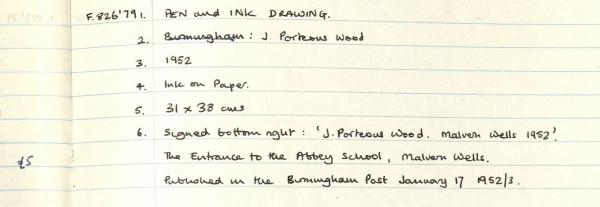 F.826'79 1. PEN and INK DRAWING.
2. Birmingham: J. Porteous Wood
3. 1952
4. Ink on Paper.
5. 31 x 38 cms
6. Signed bottom right: 'J. Porteous Wood. Malvern Wells 1952'.
£5 The Entrance to the Abbey School, Malvern Wells.
Published in the Birmingham Post January 17 1952/3.